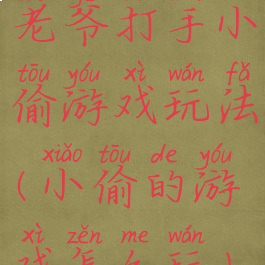 老爷打手小
tōu yóu xì wán fǎ
偷游戏玩法
xiǎo tōu de yóu
(小偷的游
xì zěn me wán
戏怎么玩)